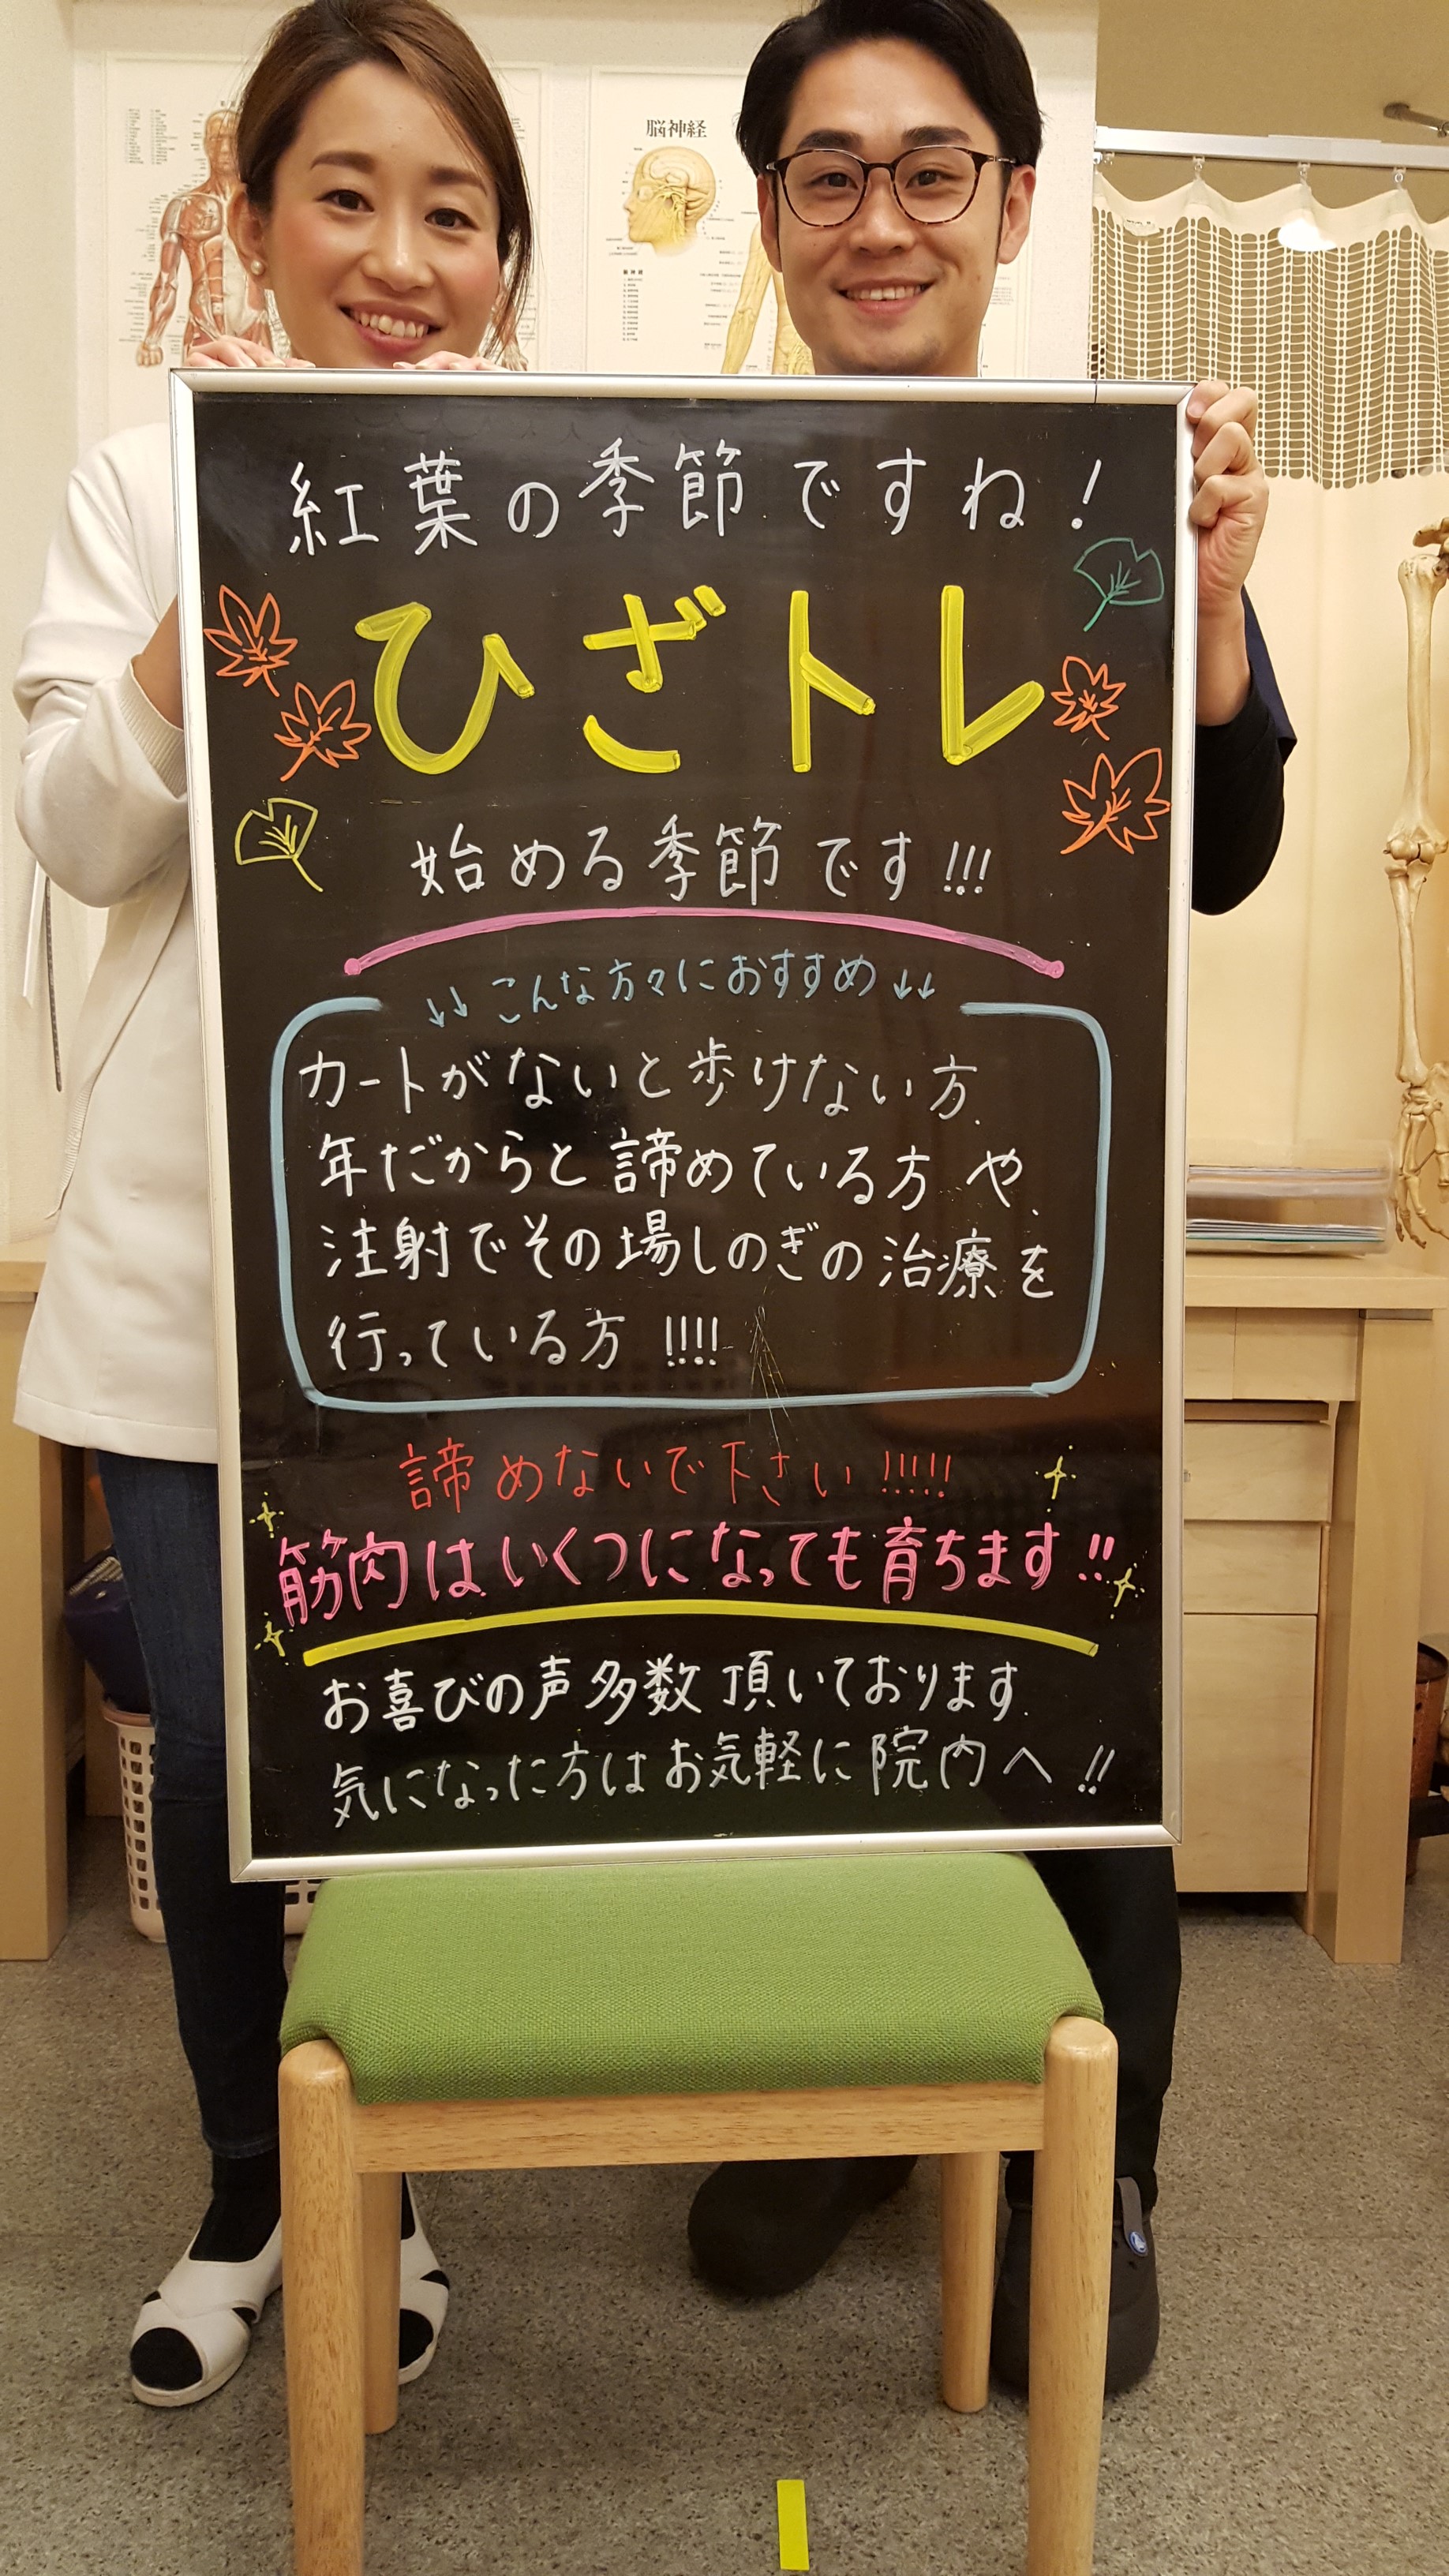 脳神経
紅葉の季節ですね!
ひざトレ
始める季節です!!!
↓↓ こんな方々におすすめ ↓↓
カートがないと歩けない方、
年だからと諦めている方や、
注射でその場しのぎの治療を
行っている方!!!!
諦めないで下さい!!!!!
筋肉はいくつになっても育ちます!!
お喜びの声多数頂いております。
気になった方はお気軽に院内へ!!